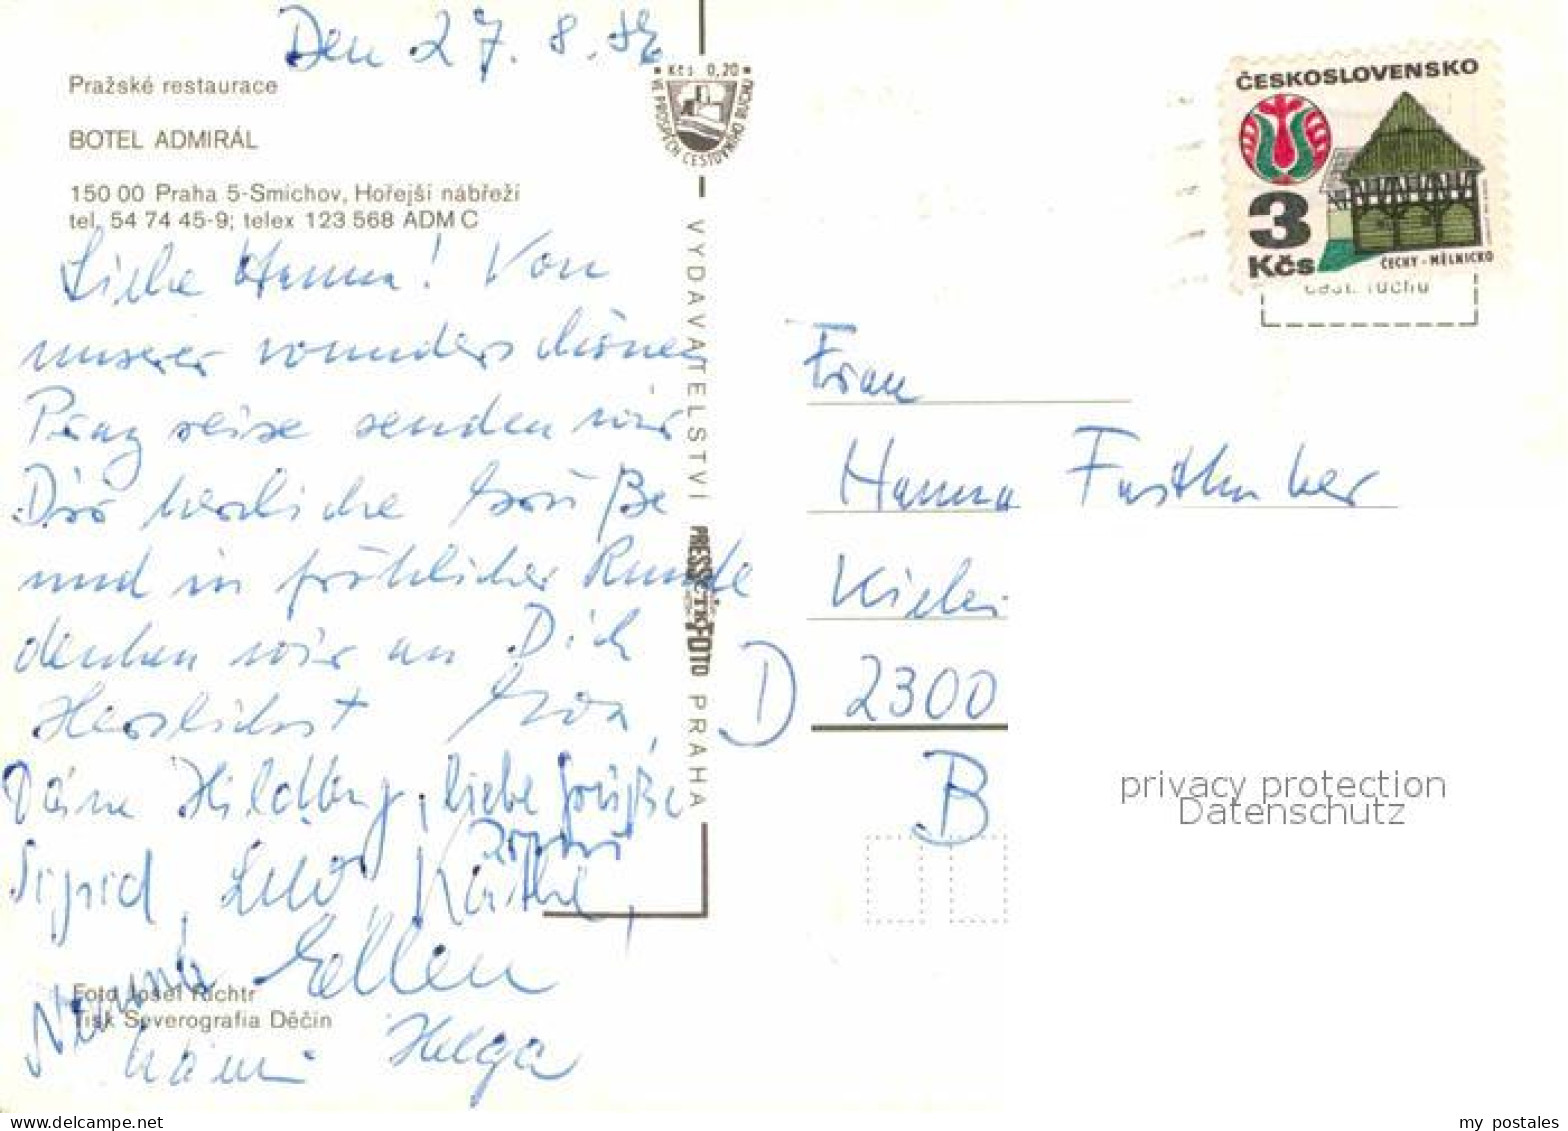 Den 27. 8. 
Pražské restaurace
BOTEL ADMIRÁL
150 00 Praha 5-Smíchov, Hořejší nábřeží
tel. 54 74 45-9; telex 123 568 ADM C
Liebe Hanna! Von
unserer wunderschönen
Pragreise senden wir
Dir herzliche Grüße
und in fröhlicher Runde
denken wir an Dich
Herzlichst
Hildbg, liebe Grüße
Sigrid, Käthe,
Ellen
Foto Josef Richtr
Tisk Severografia Děčín
Helga
Kčs 0,20
VE PROSPĚCH CESTOVNÍHO RUCHU
VYDAVATELSTVÍ PRESSFOTO PRAHA
ČESKOSLOVENSKO
3
Kčs
ČECHY - MĚLNICKO
cest. ruchu
Frau
Hanna
Kiel
D 2300
B
privacy protection
Datenschutz
my postales